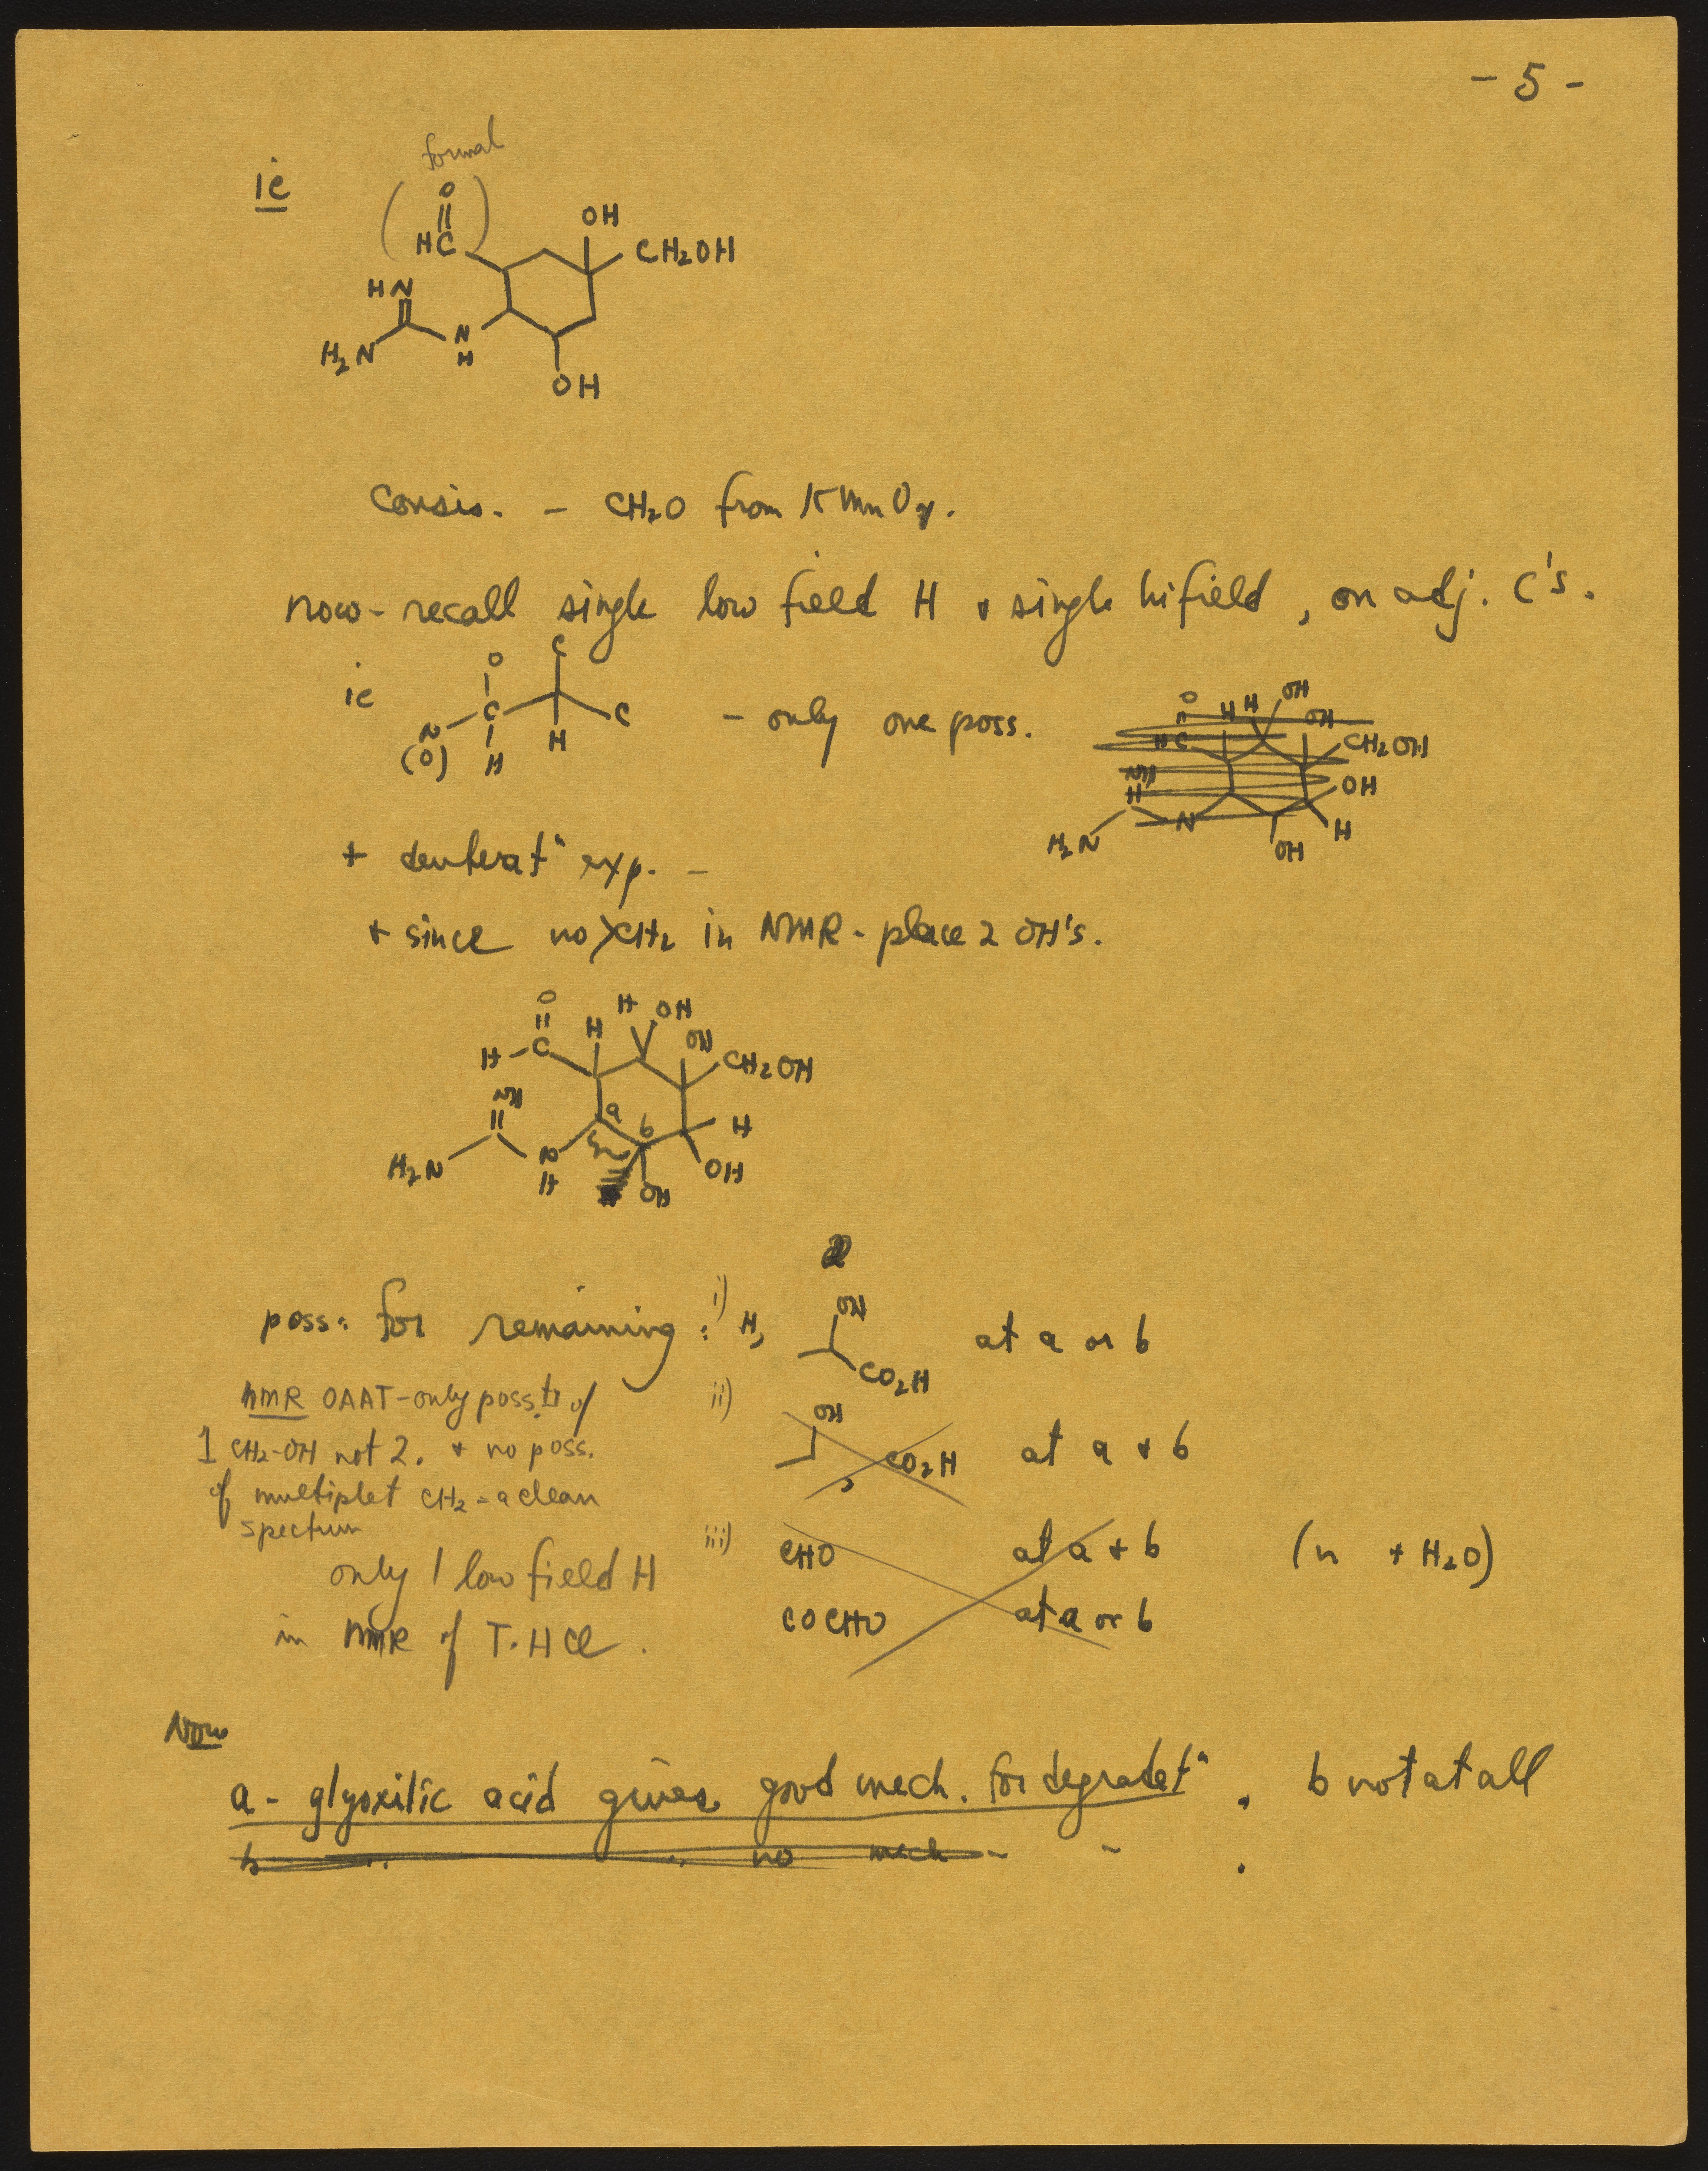 - 5 -
formal
ie
O
HC
OH
CH2OH
HN
H2N
N
H
OH
Consis. - CH2O from KMnO4.
now - recall single low field H + single hi field, on adj. C's.
ie
O
C
C
C
N
(O)
H
H
- only one poss.
O
HC
H H
OH
OH
CH2OH
OH
NH
H2N
N
OH
H
+ deuteratn exp. -
+ since no CH2 in NMR - place 2 OH's.
O
H - C
H
H OH
OH
CH2OH
NH
a
b
H
OH
H2N
N
H
OH
poss. for remaining : i) H,
OH
CO2H
at a or b
nmR OAAT - only poss. of
1 CH2-OH not 2. + no poss.
of multiplet CH2 = a clean
spectrum
ii)
OH
, CO2H
at a + b
only 1 low field H
in NMR of T. HCl.
iii)
CHO at a + b ( + H2O)
COCHO at a or b
Now
a - glyoxilic acid gives good mech. for degradatn. b not at all
b " " no mech - - .